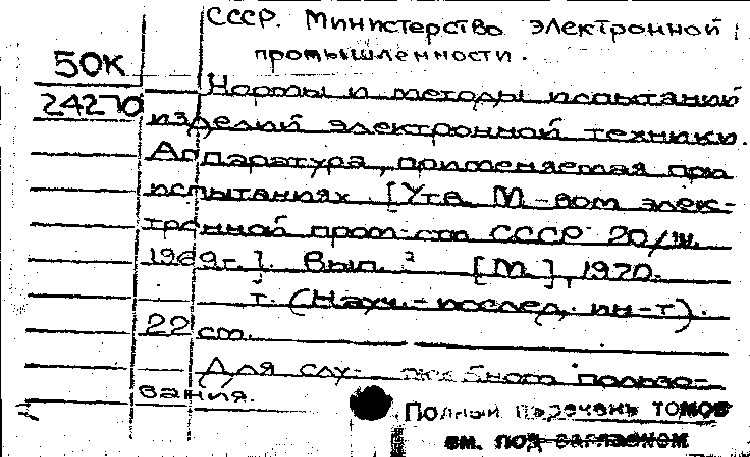 СССР. Министерство электронной
промышленности.
50К
24270
Нормы и методы испытаний
изделий электронной техники.
Аппаратура, применяемая при
испытаниях. [Утв. М-вом элек-
тронной пром-сти СССР 20/III.
1969г.]. Вып. 2 [М.], 1970.
т. (Науч.-исслед. ин-т).
22 см.
Для служебного пользо-
вания.
Полный перечень томов
см. под заглавием